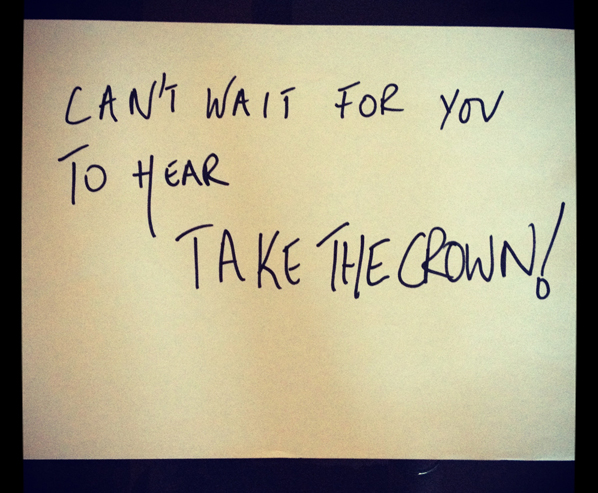 CAN'T WAIT FOR YOU
TO HEAR
TAKE THE CROWN!